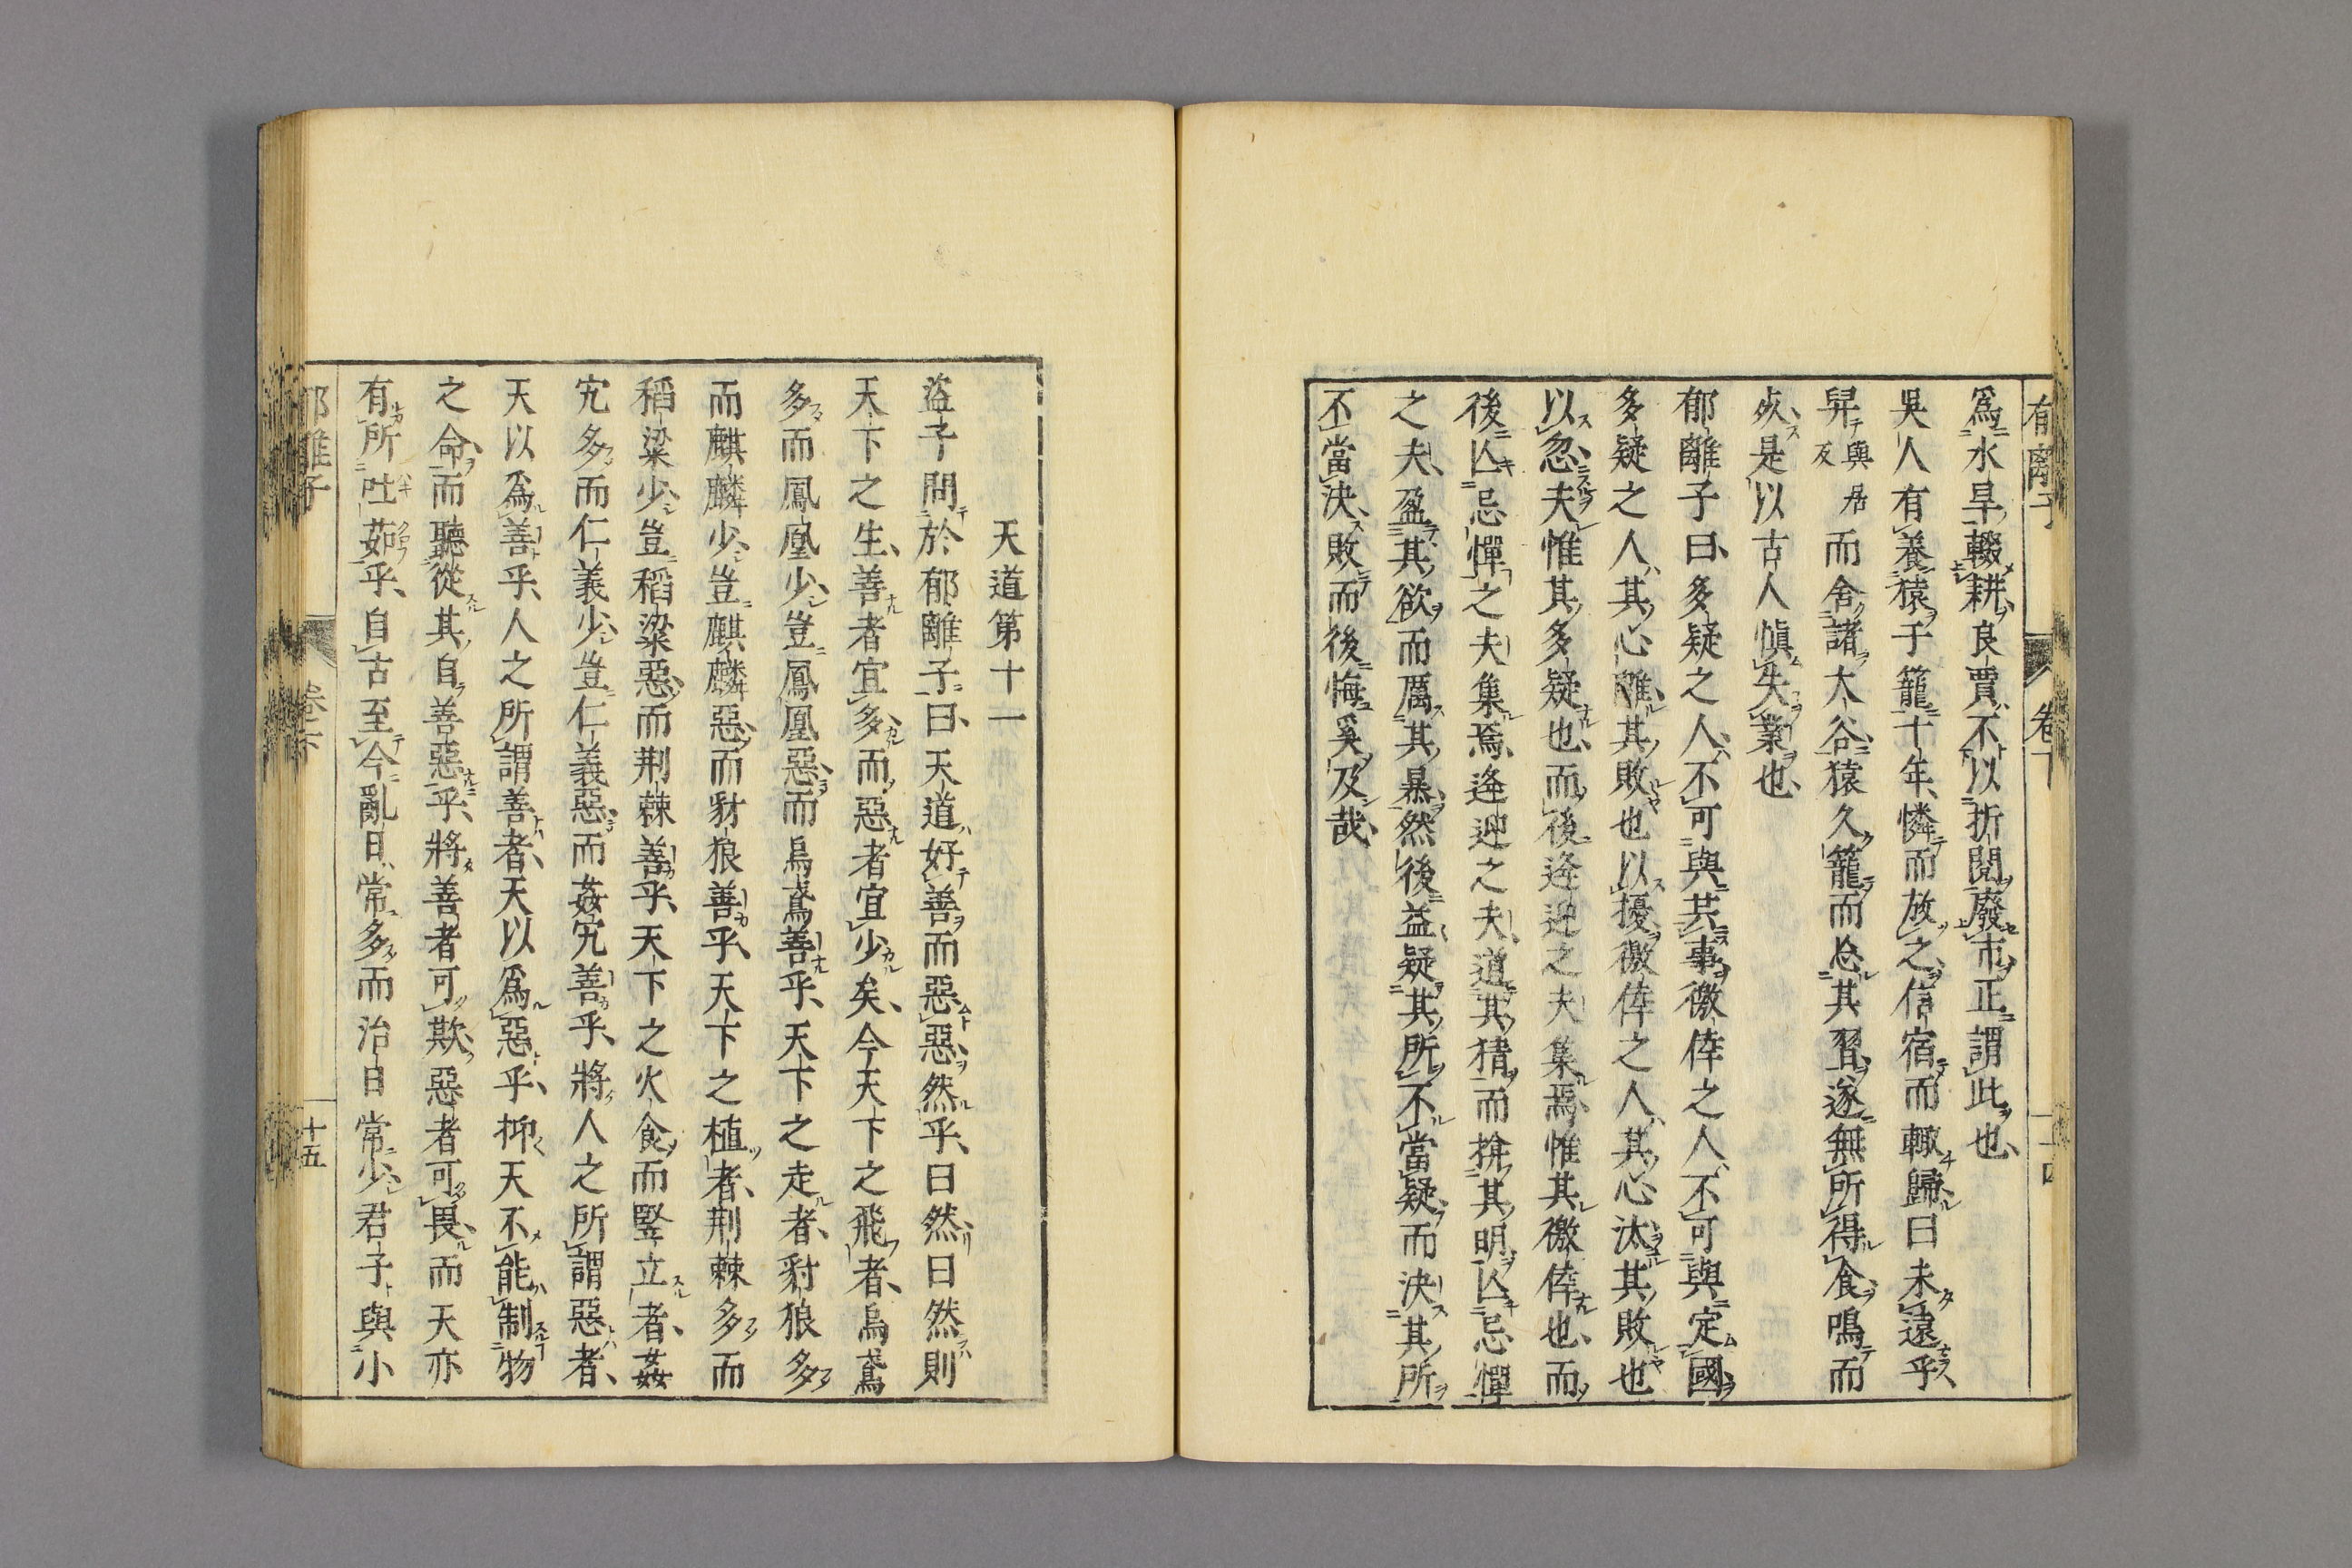 爲水旱輟耕良賈不以折閱廢市正謂此也
吳人有養猿于籠十年憐而放之信宿而輙歸曰未遠乎
舁與舁及居而舍諸大谷猿久籠而忘其習遂無所得食鳴而
死是以古人愼失業也
郁離子曰多疑之人不可與共事徼倖之人不可與定國
多疑之人其心離其敗也以擾徼倖之人其心汰其敗也
以忽夫惟其多疑也而後逢迎之夫集焉惟其徼倖也而
後亾忌憚之夫集焉逢迎之夫道其猜而揜其明亾忌憚
之夫盈其欲而厲其暴然後益疑其所不當疑而決其所
不當決敗而後悔奚及哉
天道第十一
盜子問於郁離子曰天道好善而惡惡然乎曰然曰然則
天下之生善者宜多而惡者宜少矣今天下之飛者烏鳶
多而鳳凰少豈鳳凰惡而烏鳶善乎天下之走者豺狼多
而麒麟少豈麒麟惡而豺狼善乎天下之植者荆棘多而
稻粱少豈稻粱惡而荆棘善乎天下之火食而竪立者姦
宄多而仁義少豈仁義惡而姦宄善乎將人之所謂惡者
天以爲善乎人之所謂善者天以爲惡乎抑天不能制物
之命而聽從其自善惡乎將善者可欺惡者可畏而天亦
有所吐茹乎自古至今亂日常多而治日常少君子與小
郁離子 卷下 十五